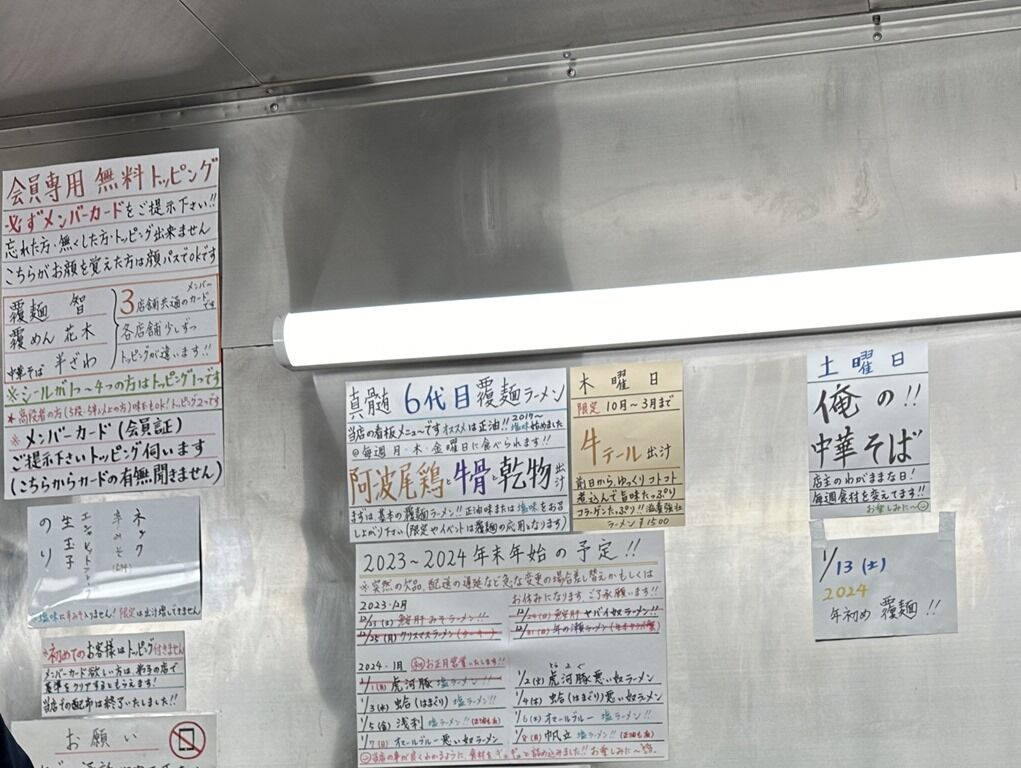 会員専用 無料トッピング
必ずメンバーカードをご提示下さい!!
忘れた方・無くした方・トッピング出来ません
こちらがお顔を覚えた方は顔パスでokです
覆麺 智
覆めん 花木
中華そば 半ざわ
3店舗共通のメンバーカードです
各店舗少しずつ
トッピングが違います!!
※シールが1つ～4つの方はトッピング1つです
※メンバーカード(会員証)
ご提示下さいトッピング伺います
(こちらからカードの有無聞きません)
ネック
生玉子
のり
※初めてのお客様はトッピング付きません
メンバーカード欲しい方は、
基準をクリアするともらえます!
当店での配布は終了いたしました!!
お願い
真髄 6代目 覆麺ラーメン
当店の看板メニューです オススメは正油!! 2017～塩味始めました
@毎週 月・木・金曜日に食べられます!!
阿波尾鶏と牛骨と乾物出汁
まずは基本の覆麺ラーメン!!正油味または塩味をお召
し上がり下さい(限定やイベントは覆麺の応用になります)
木曜日
限定 10月～3月まで
牛テール出汁
前日からゆっくりコトコト
煮込んで旨味たっぷり
コラーゲンたっぷり!!
ラーメン ¥1500
土曜日
俺の!!
中華そば
店主のわがままな日!
毎週食材を変えてます!!
お楽しみに～
1/13(土)
2024
年初め 覆麺!!
2023～2024年末年始の予定!!
※突然の欠品、配送の遅延など急な変更の場合差し替えかもしくは
お休みになります。ご了承願います!!
2023.12月
みそラーメン!!
12/25(月) クリスマスラーメン
ヤバイ奴ラーメン!!
12/31(日) 年の瀬ラーメン
2024.1月 お正月営業いたします!!
1/1(月) 虎河豚 塩ラーメン!!
1/2(火) 虎河豚 悪い奴ラーメン
1/3(水) 蛤(はまぐり) 塩ラーメン!!
1/4(木) 蛤(はまぐり) 悪い奴ラーメン
1/5(金) 浅利 塩ラーメン!!(正油も有)
1/6(土) オマールブルー 塩ラーメン!!
1/7(日) オマールブルー 悪い奴ラーメン
1/8(月) 帆立 塩ラーメン!!(正油も有)